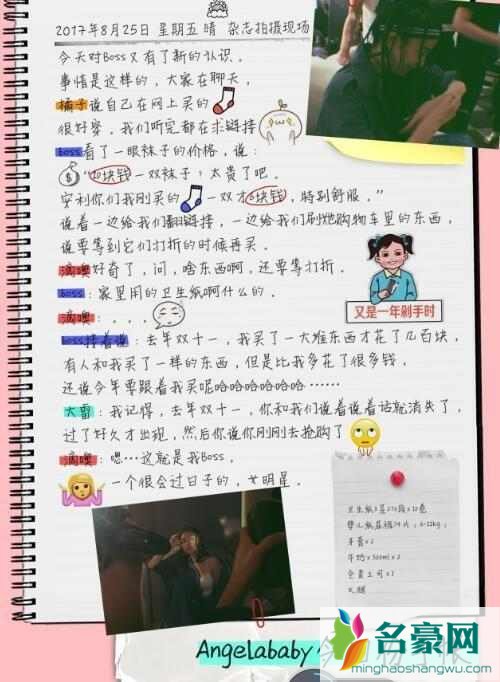 2017年8月25日 星期五 晴 杂志拍摄现场
今天对Boss又有了新的认识。
事情是这样的,大家在聊天,
橘子说自己在网上买的
很好穿,我们听完都在求链接
boss看了一眼袜子的价格,说:
$
“10块钱一双袜子,太贵了吧。
安利你们我刚买的 一双才6块钱,特别舒服。”
说着一边给我们翻链接,一边给我们刷她购物车里的东西,
说要等到它们打折的时候再买。
滴噢好奇了,问,啥东西啊,还要等打折。
boss:家里用的卫生纸啊什么的。
滴噢:。。。
又是一年剁手时
boss接着说:去年双十一,我买了一大堆东西才花了几百块,
有人和我买了一样的东西,但是比我多花了很多钱,
还说今年要跟着我买呢哈哈哈哈哈哈……
大雷:我记得,去年双十一,你和我们说着说着话就消失了,
过了好久才出现,然后你说你刚刚去抢购了
滴噢:嗯…这就是我Boss。
一个很会过日子的,女明星。
牛奶
Angelababy
名豪网
minghaoshangwu.com